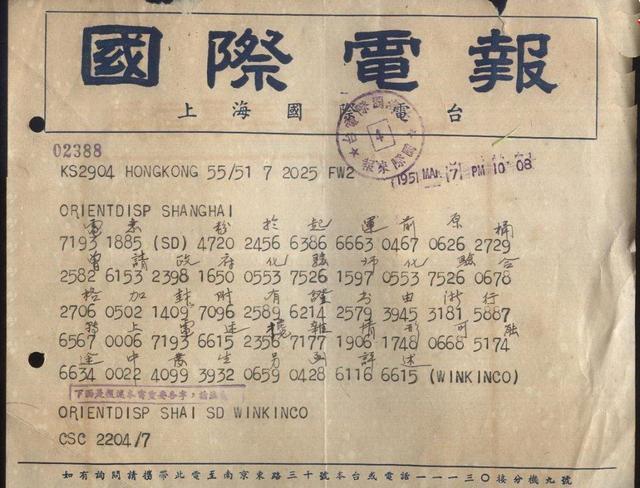 國際電報
上海國際電台
4
02388
KS2904 HONGKONG 55/51 7 2025 FW2
1951 MAR (7) PM 10 08
ORIENTDISP SHANGHAI
電悉 粉於起運前原桶
7193 1885 (SD) 4720 2456 6386 6663 0467 0626 2729
曾請政府化驗師化驗合
2582 6153 2398 1650 0553 7526 1597 0553 7526 0678
格加封附有證書由浙行
2706 0502 1409 7096 2589 6214 2579 3945 3181 5887
上電述攙雜情形可能
6567 0006 7193 6615 2356 7177 1906 1748 0668 5174
途中發生另函詳述
6634 0022 4099 3932 0659 0428 6116 6615 (WINKINCO)
ORIENTDISP SHAI SD WINKINCO
CSC 2204/7
如有詢問請攜帶此電至南京東路三十號本台或電話一一一三〇接分機九號